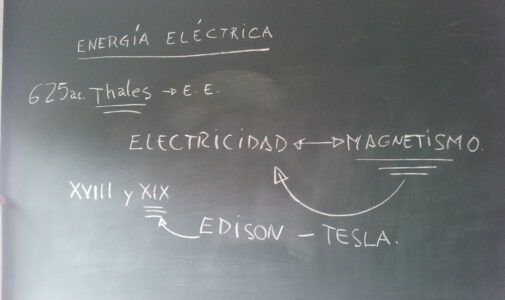 ENERGÍA ELÉCTRICA
625 ac. Thales → E. E.
ELECTRICIDAD ↔ MAGNETISMO.
XVIII y XIX
EDISON - TESLA.